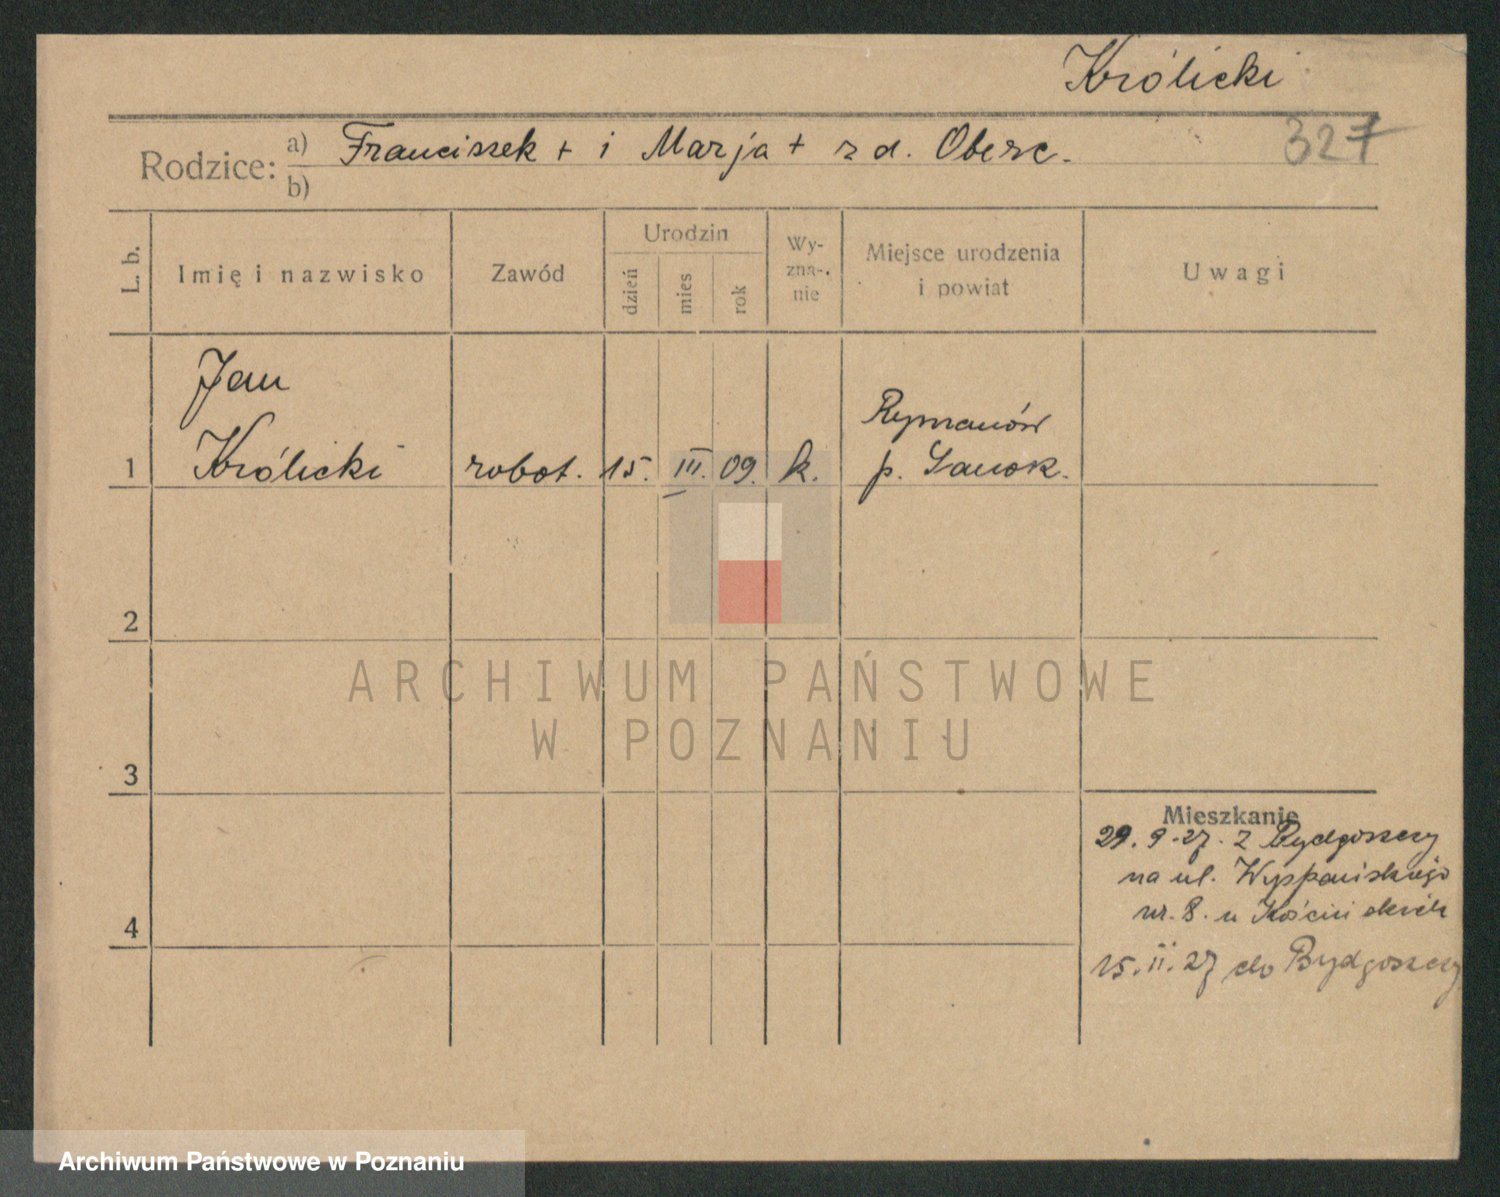 Królicki
327
Rodzice: a) Franciszek + i Marja + z d. Oberc.
b)
L. b.
Imię i nazwisko
Zawód
Urodzin
dzień
mies
rok
Wy-
zna-
nie
Miejsce urodzenia
i powiat
Uwagi
Jan
Królicki
1
robot.
15.
III.
09.
k.
Rymanów
p. Sanok.
2
3
4
Mieszkanie
29. 9. 27. z Bydgoszczy
na ul.
nr. 8. u
15. II. 27 do Bydgoszczy
ARCHIWUM PAŃSTWOWE
W POZNANIU
Archiwum Państwowe w Poznaniu